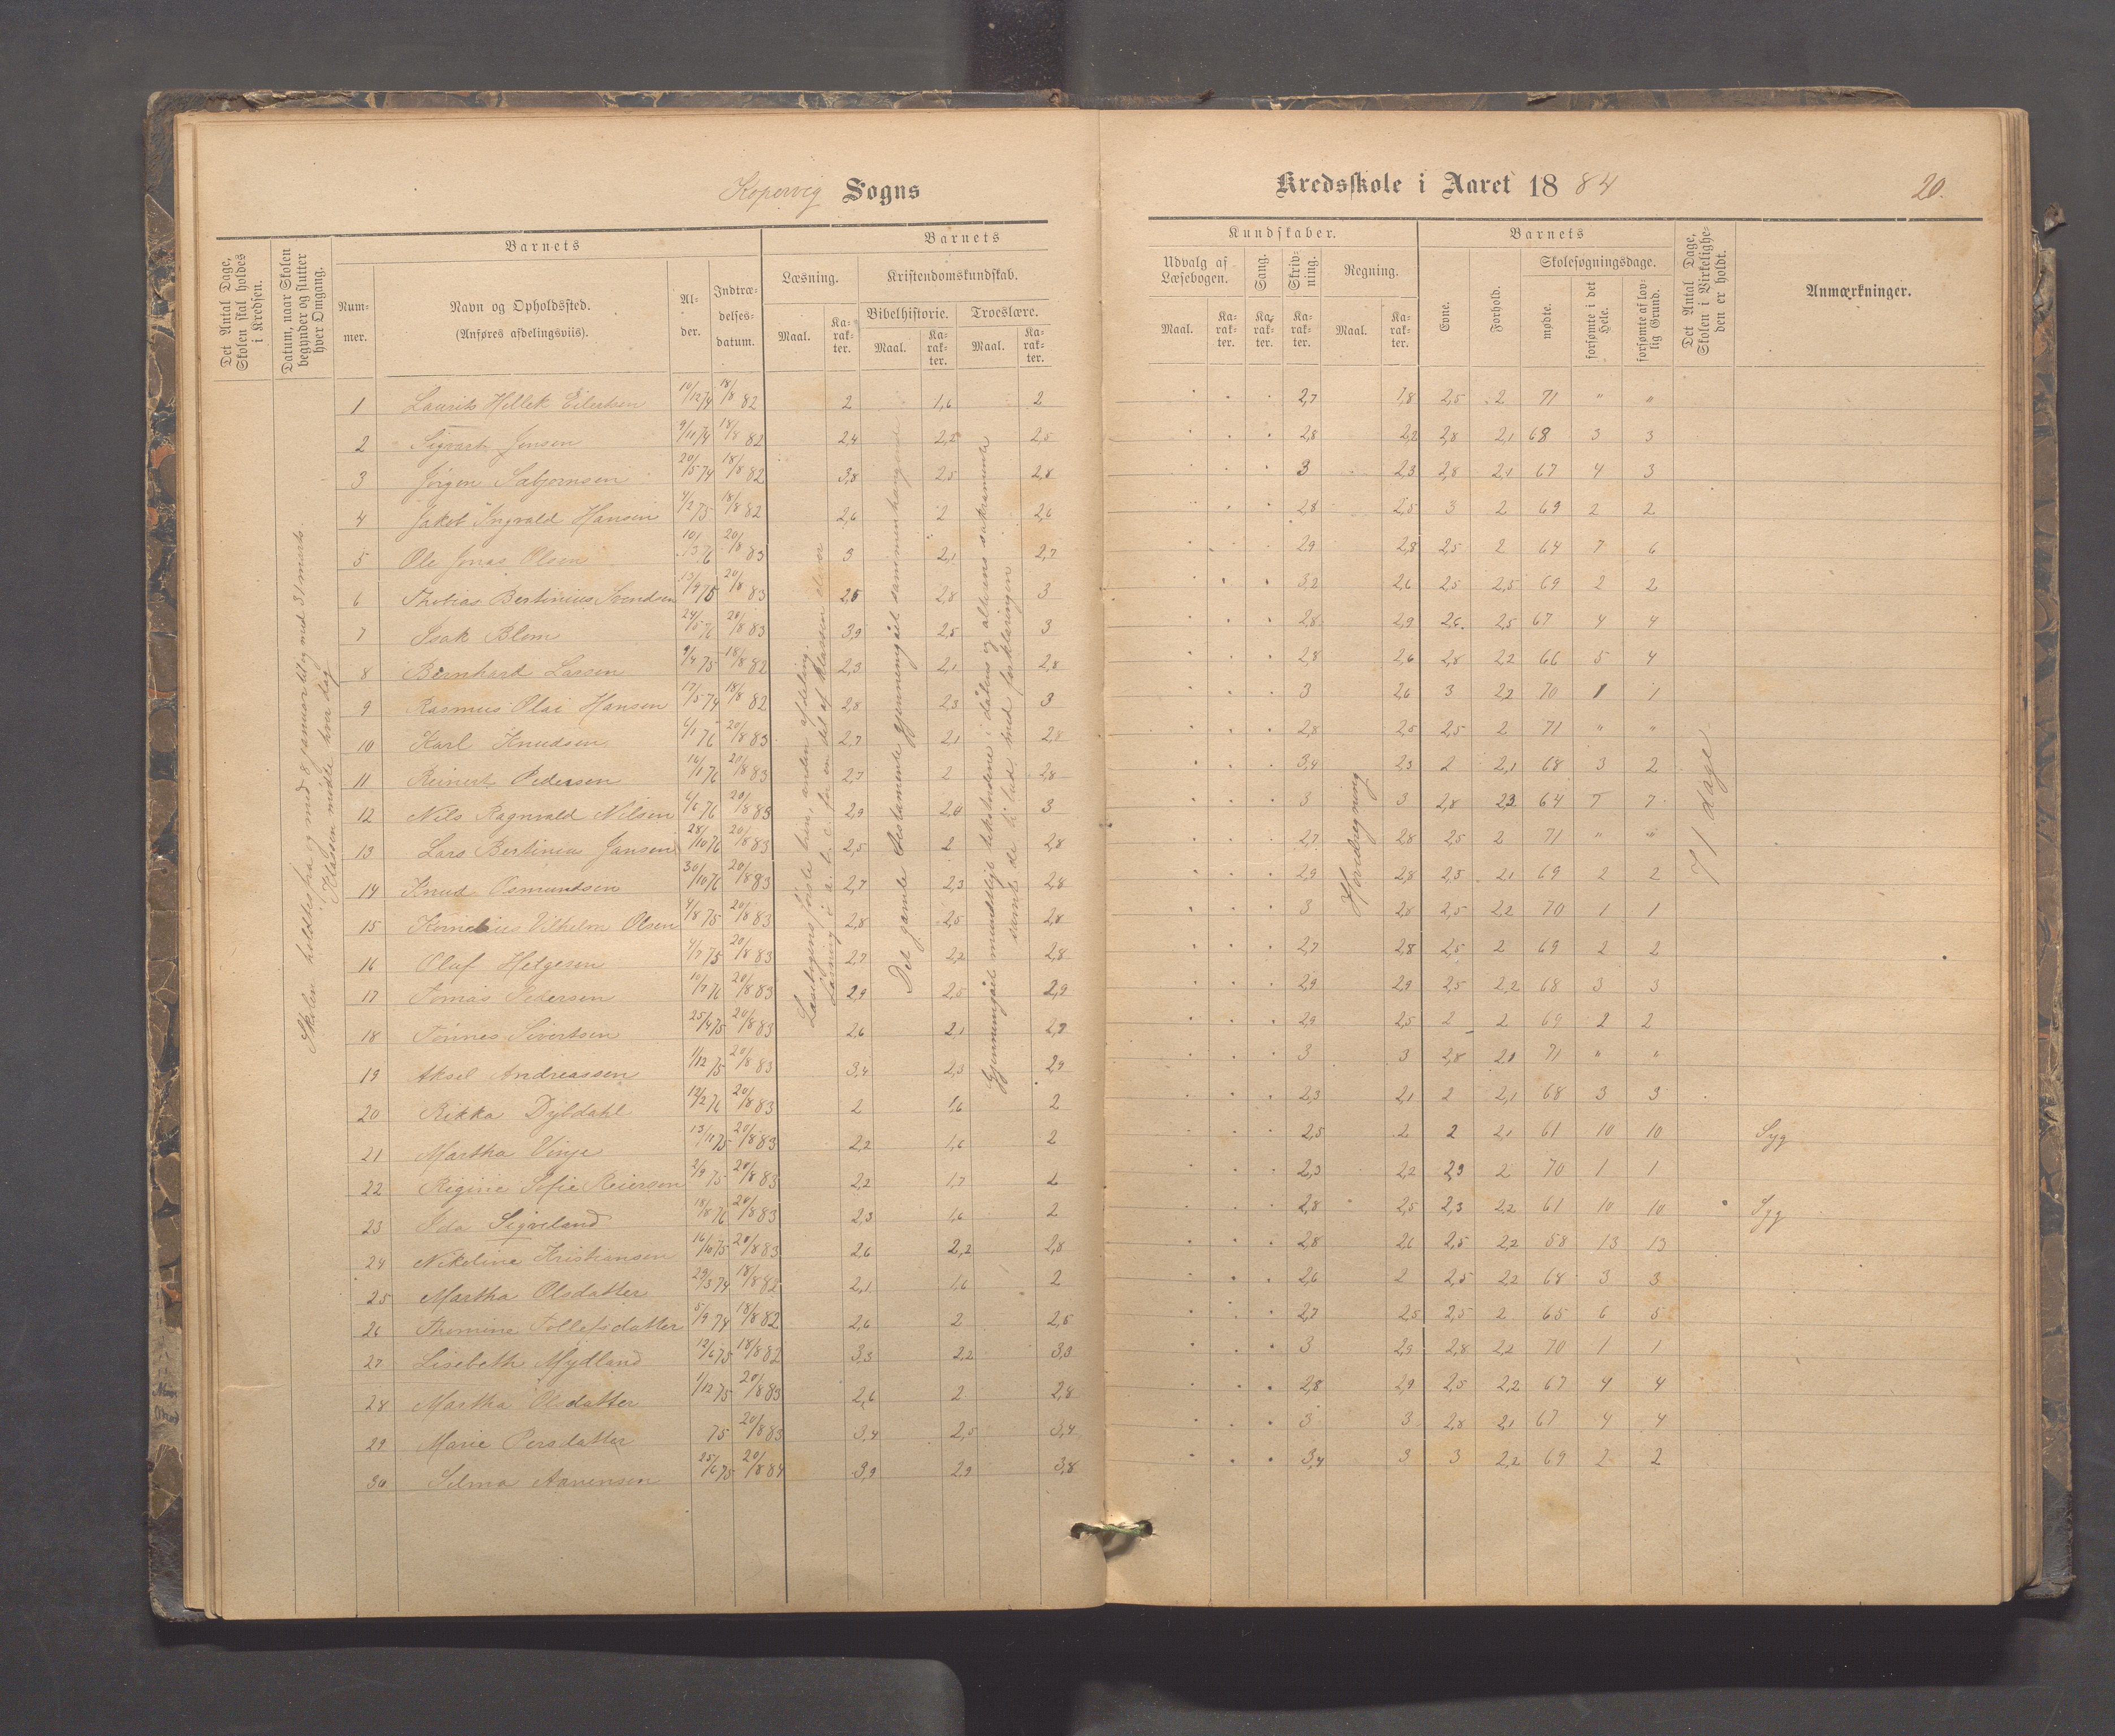 Kopervig Sogns
Kredsskole i Aaret 1884
20.
Det Antal Dage, Skolen skal holdes i Kredsen.
Datum, naar Skolen begynder og slutter hver Omgang.
Barnets
Nummer.
Navn og Opholdssted.
(Anføres afdelingsviis).
Alder.
Indtrædelsesdatum.
Barnets
Læsning.
Kristendomskundskab.
Bibelhistorie.
Troeslære.
Maal.
Karakter.
Maal.
Karakter.
Maal.
Karakter.
Kundskaber.
Udvalg af Læsebogen.
Sang.
Skrivning.
Regning.
Maal.
Karakter.
Karakter.
Karakter.
Maal.
Karakter.
Barnets
Evne.
Forhold.
Skolesøgningsdage.
mødte.
forsømte i det Hele.
forsømte af lovlig Grund.
Det Antal Dage, Skolen i Virkeligheden er holdt.
Anmærkninger.
Skolen holdtes fra og med 8 januar til og med 31 marts.
Klassen mødte hver dag
Læsebogens første trin, anden afdeling.
Læsning i a. b. c. for en del af klassen elever
Det gamle testamente gjennemgået sammenhængende
Gjennemgået mundtligt tekstordene i dåbens og alterens sakramente
samt de ti bud med forklaringen
Hovedregning
71 dage
1 Laurits Hellek Eilertsen 10/12 74 18/8 82 2 1,6 2 2,7 1,8 2,5 2 71 " "
2 Sigvart Jensen 9/11 74 18/8 82 2,4 2,2 2,5 2,8 2,2 2,8 2,1 68 3 3
3 Jørgen Sabjørnsen 20/5 74 18/8 82 3,8 2,5 2,8 3 2,3 2,8 2,1 67 4 3
4 Jakob Ingvald Hansen 4/2 75 18/8 82 2,6 2 2,6 2,8 2,5 3 2 69 2 2
5 Ole Jonas Olsen 10/3 76 20/8 83 3 2,1 2,7 2,9 2,8 2,5 2 64 7 6
6 Thobias Bertinius Svendsen 13/9 75 20/8 83 2,5 2,8 3 3,2 2,6 2,5 2,5 69 2 2
7 Isak Blom 24/5 76 20/8 83 3,9 2,5 3 2,8 2,9 2,6 2,5 67 4 4
8 Bernhard Larsen 9/4 75 18/8 82 2,3 2,1 2,8 2,8 2,6 2,8 2,2 66 5 4
9 Rasmus Olai Hansen 17/5 74 18/8 82 2,8 2,3 3 3 2,6 3 2,2 70 1 1
10 Karl Knudsen 6/1 76 20/8 83 2,7 2,1 2,8 2,8 2,5 2,5 2 71 " "
11 Reinert Pedersen 16/1 76 20/8 83 2,7 2 2,8 3,4 2,3 2 2,1 68 3 2
12 Nils Ragnvald Nilsen 6/6 76 20/8 83 2,9 2,4 3 3 3 2,8 2,3 64 7 7
13 Lars Bertinius Jansen 28/10 76 20/8 83 2,5 2 2,8 2,7 2,8 2,5 2 71 " "
14 Knud Osmundsen 30/10 76 20/8 83 2,7 2,3 2,8 2,9 2,8 2,5 2,1 69 2 2
15 Kornelius Vilhelm Olsen 4/8 75 20/8 83 2,8 2,5 2,8 3 2,8 2,5 2,2 70 1 1
16 Oluf Helgesen 4/7 75 20/8 83 2,7 2,2 2,8 2,7 2,8 2,5 2 69 2 2
17 Tomas Pedersen 10/7 76 20/8 83 2,9 2,5 2,9 2,9 2,9 2,5 2,2 68 3 3
18 Tønnes Sivertsen 25/4 75 20/8 83 2,6 2,1 2,7 2,9 2,5 2 2 69 2 2
19 Aksel Andreassen 1/12 75 20/8 83 3,4 2,3 2,9 3 3 2,8 2,1 71 " "
20 Rikka Dybdahl 12/2 76 20/8 83 2 1,6 2 2,3 2,1 2 2,1 68 3 3
21 Martha Vinje 13/11 75 20/8 83 2,2 1,6 2 2,5 2 2 2,1 61 10 10 Syg
22 Regine Sofie Reiersen 2/9 75 20/8 83 2,2 1,7 2 2,3 2,2 2,3 2 70 1 1
23 Ida Sigveland 18/8 76 20/8 83 2,3 1,6 2 2,8 2,5 2,3 2,2 61 10 10 Syg
24 Nikoline Kristiansen 16/10 75 20/8 83 2,6 2,2 2,8 2,8 2,6 2,5 2,2 58 13 13
25 Martha Olsdatter 29/3 74 18/8 82 2,1 1,6 2 2,6 2 2,5 2,2 68 3 3
26 Thomine Tollefsdatter 5/9 74 18/8 82 2,6 2 2,5 2,7 2,5 2,5 2 65 6 5
27 Lisebeth Mydland 12/6 75 18/8 82 3,3 2,2 3,3 3 2,9 2,8 2,2 70 1 1
28 Martha Olsdatter 1/12 75 20/8 83 2,6 2 2,8 2,8 2,9 2,5 2,2 67 4 4
29 Marie Persdatter 75 20/8 83 3,4 2,5 3,4 3 3 2,8 2,1 67 4 4
30 Selma Aanensen 25/6 75 20/8 84 3,9 2,9 3,8 3,4 3 3 2,2 69 2 2